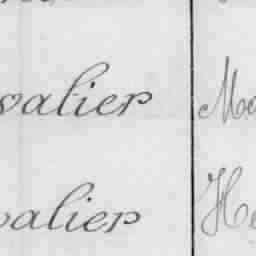 valier Ma
valier He